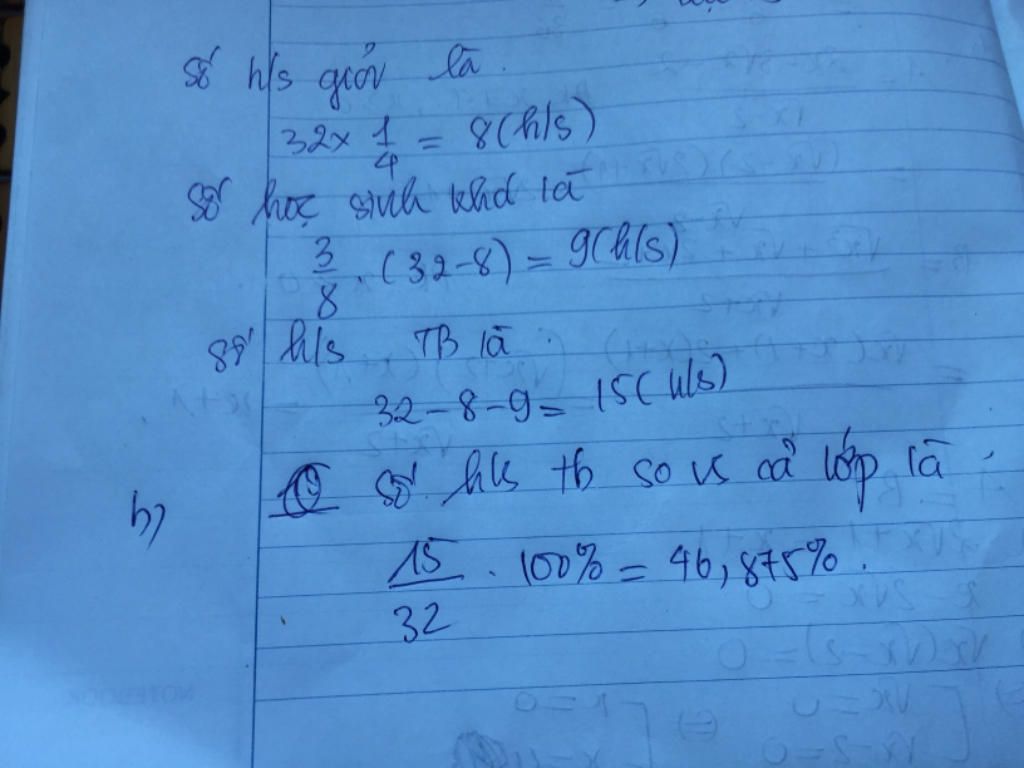 Số h/s giỏi là.
32 x 1/4 = 8 (h/s)
Số học sinh khá là
3/8 . (32-8) = 9 (h/s)
số h/s TB là.
32 - 8 - 9 = 15 (h/s)
b) số h/s tb so vs cả lớp là.
15/32 . 100% = 46,875%.